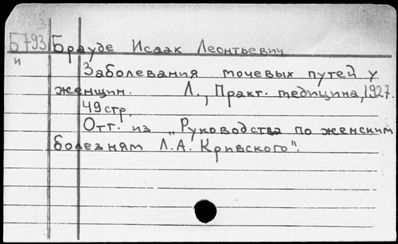 Б793 Брауде Исаак Леонтьевич
и
Заболевания мочевых путей у
женщин. Л., Практ. медицина, 1927.
49 стр.
Отт. из „Руководства по женским
болезням Л.А. Кривского".